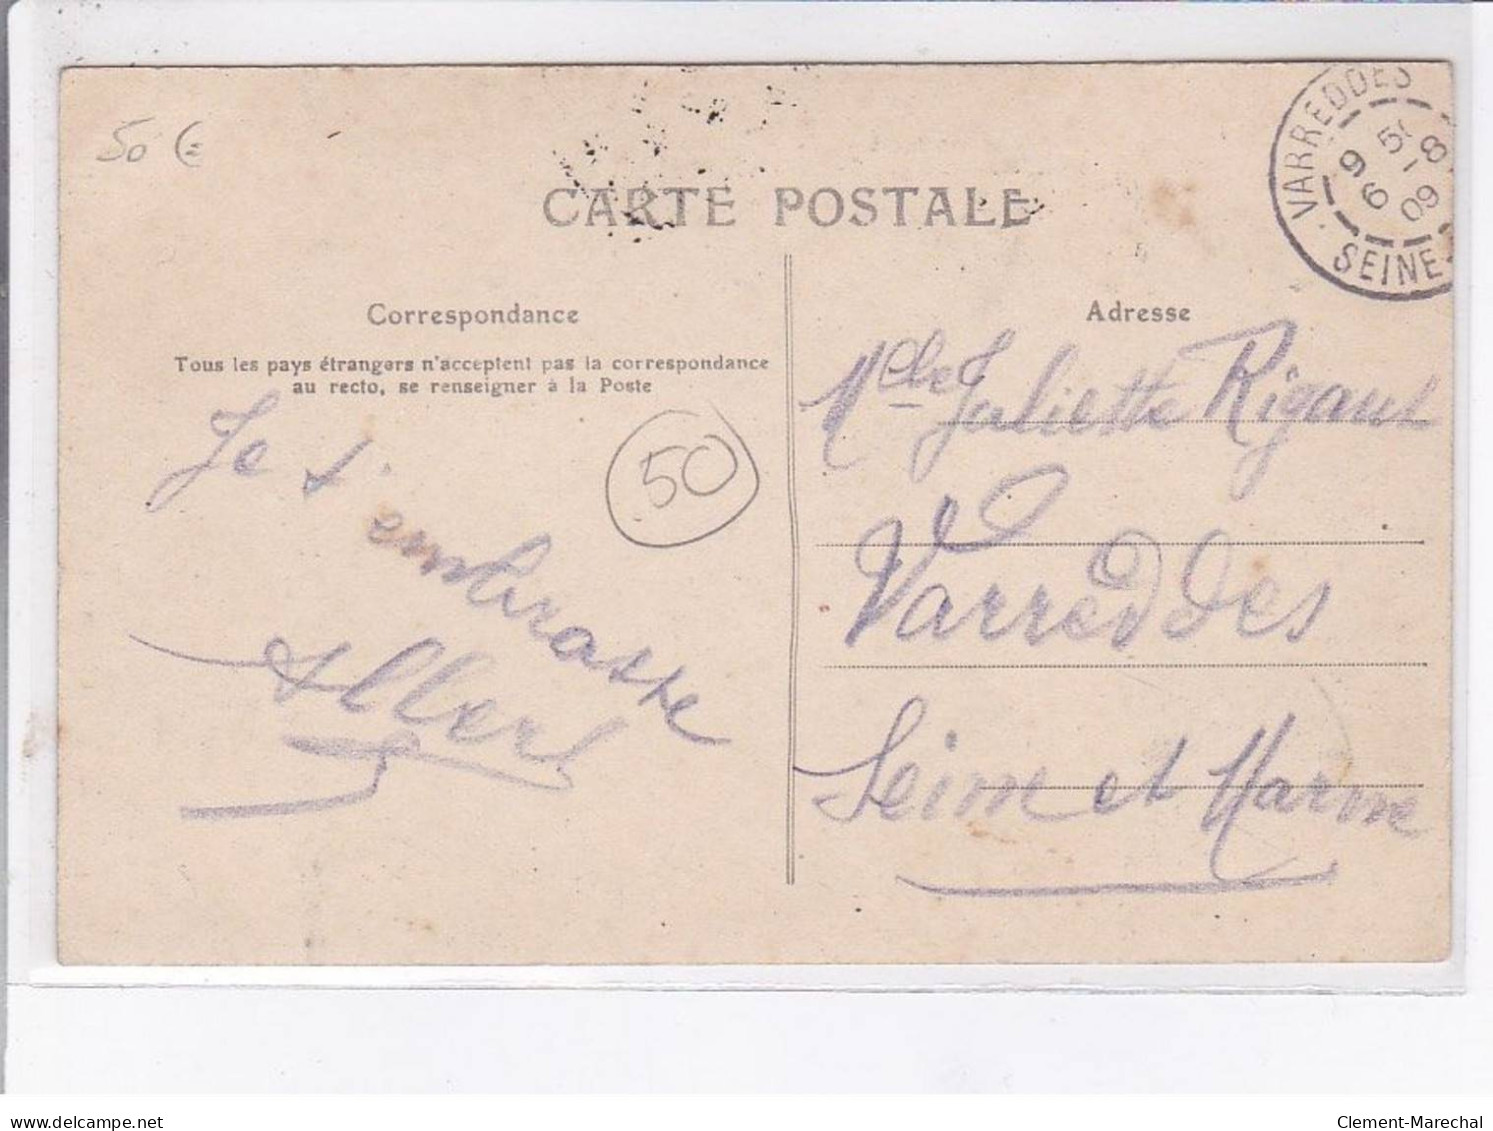 50 €
CARTE POSTALE
VARREDDES
9 50
6 -8
09
SEINE
Correspondance
Adresse
Tous les pays étrangers n'acceptent pas la correspondance
au recto, se renseigner à la Poste
50
Je t'embrasse
Albert
Melle Juliette Rigaut
Varreddes
Seine et Marne
www.delcampe.net
Clement-Marechal